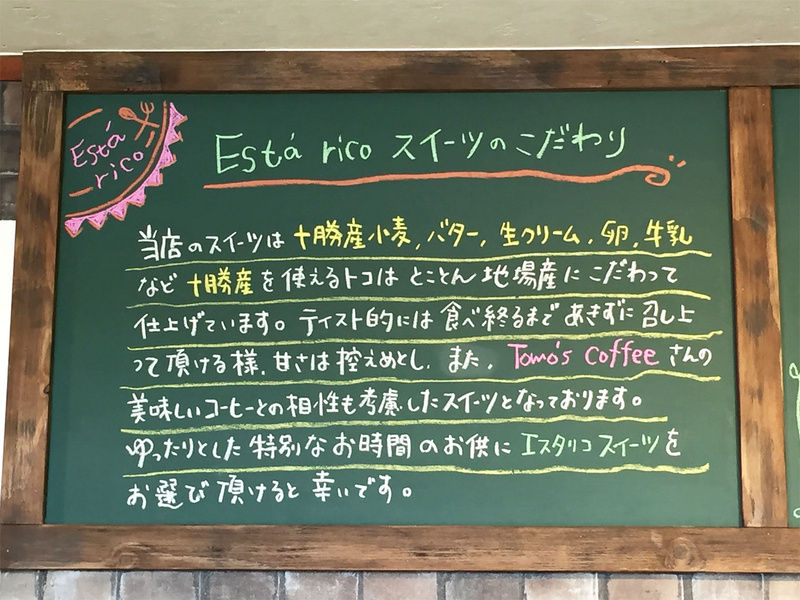 Está
rico
Está rico スイーツのこだわり
当店のスイーツは十勝産小麦,バター,生クリーム,卵,牛乳
など十勝産を使えるトコはとことん地場産にこだわって
仕上げています。テイスト的には食べ終るまであきずに召し上
って頂ける様,甘さは控えめとし,また,Tomo's coffeeさんの
美味しいコーヒーとの相性も考慮したスイーツとなっております。
ゆったりとした特別なお時間のお供にエスタリコスイーツを
お選び頂けると幸いです。